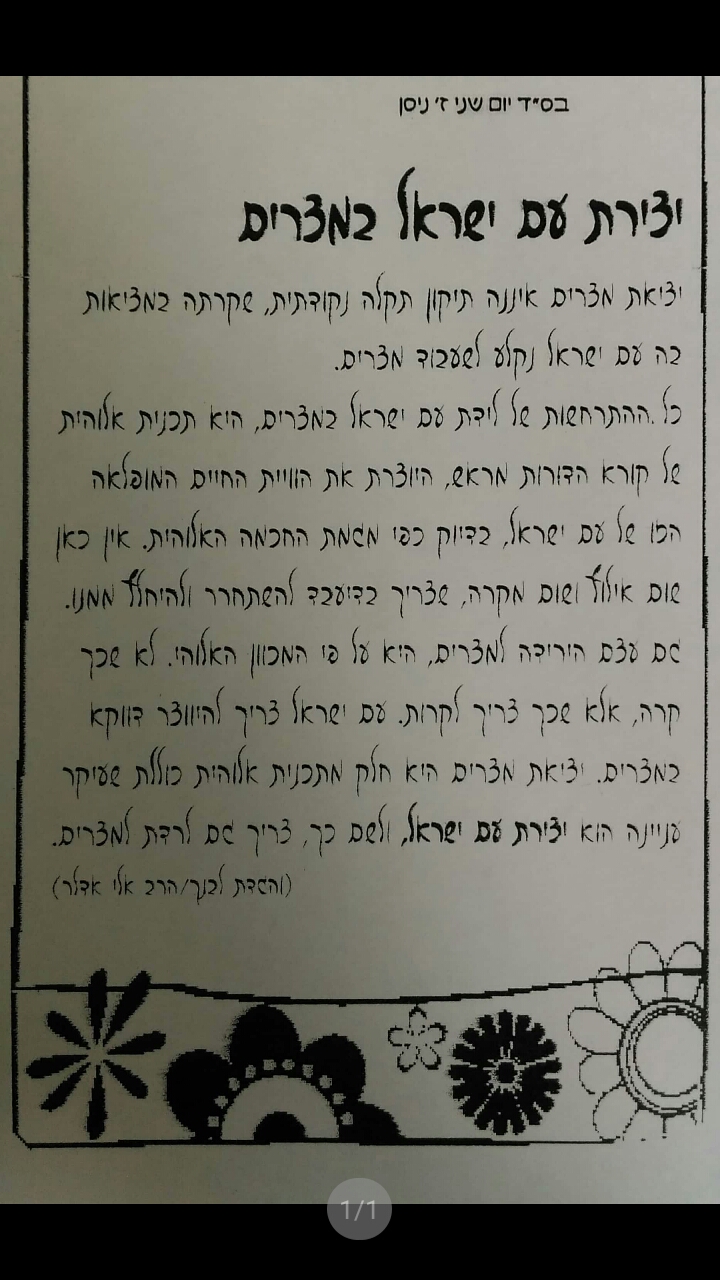 בס״ד יום שני ז׳ ניסן
יצירת עם ישראל במצרים
יציאת מצרים איננה תיקון תקלה נקודתית, שקרתה במציאות
בה עם ישראל נקלע לשעבוד מצרים.
כל .ההתרחשות של לידת עם ישראל במצרים, היא תכנית אלוהית
של קורא הדורות מראש, היוצרת את הוויית החיים המופלאה
הזו של עם ישראל, בדיוק כפי מגמת החכמה האלוהית. אין כאן
שום אילוץ ושום מקרה, שצריך בדיעבד להשתחרר ולהיחלץ ממנו.
גם עצם הירידה למצרים, היא על פי המכוון האלוהי. לא שכך
קרה, אלא שכך צריך לקרות. עם ישראל צריך להיווצר דווקא
במצרים. יציאת מצרים היא חלק מתכנית אלוהית כוללת שעיקר
עניינה הוא יצירת עם ישראל, ולשם כך, צריך גם לרדת למצרים.
(והגדת לבנך/הרב אלי אדלר)
1/1